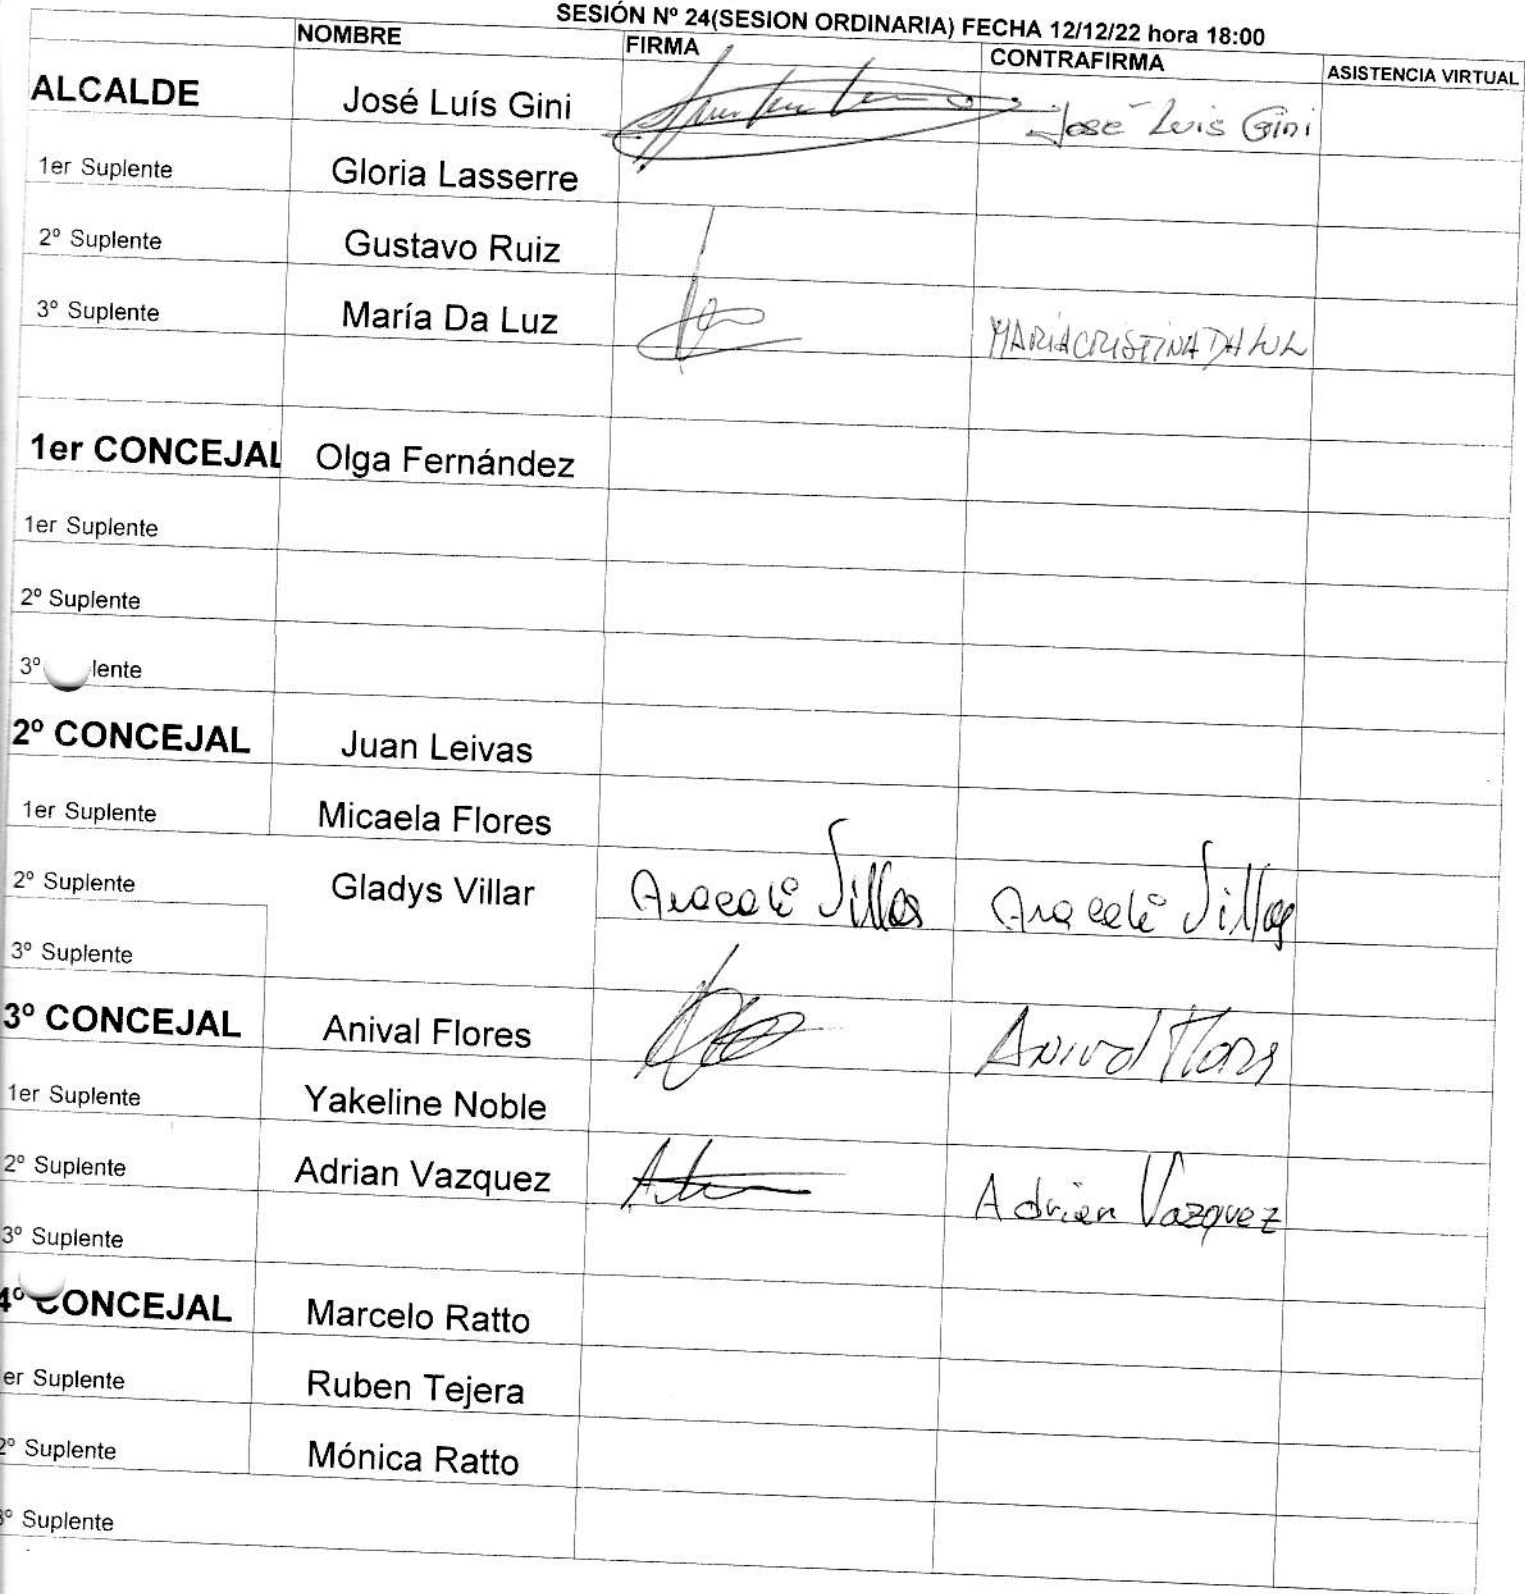 SESIÓN Nº 24(SESION ORDINARIA) FECHA 12/12/22 hora 18:00
NOMBRE FIRMA CONTRAFIRMA ASISTENCIA VIRTUAL
ALCALDE José Luís Gini José Luis Gini
1er Suplente Gloria Lasserre
2º Suplente Gustavo Ruiz
3º Suplente María Da Luz MARIA CRISTINA DA LUZ
1er CONCEJAL Olga Fernández
1er Suplente
2º Suplente
3º lente
2º CONCEJAL Juan Leivas
1er Suplente Micaela Flores
2º Suplente Gladys Villar Araceli Villar Araceli Villar
3º Suplente
3º CONCEJAL Anival Flores Anival Flores
1er Suplente Yakeline Noble
2º Suplente Adrian Vazquez Adrián Vazquez
3º Suplente
4º CONCEJAL Marcelo Ratto
er Suplente Ruben Tejera
2º Suplente Mónica Ratto
º Suplente